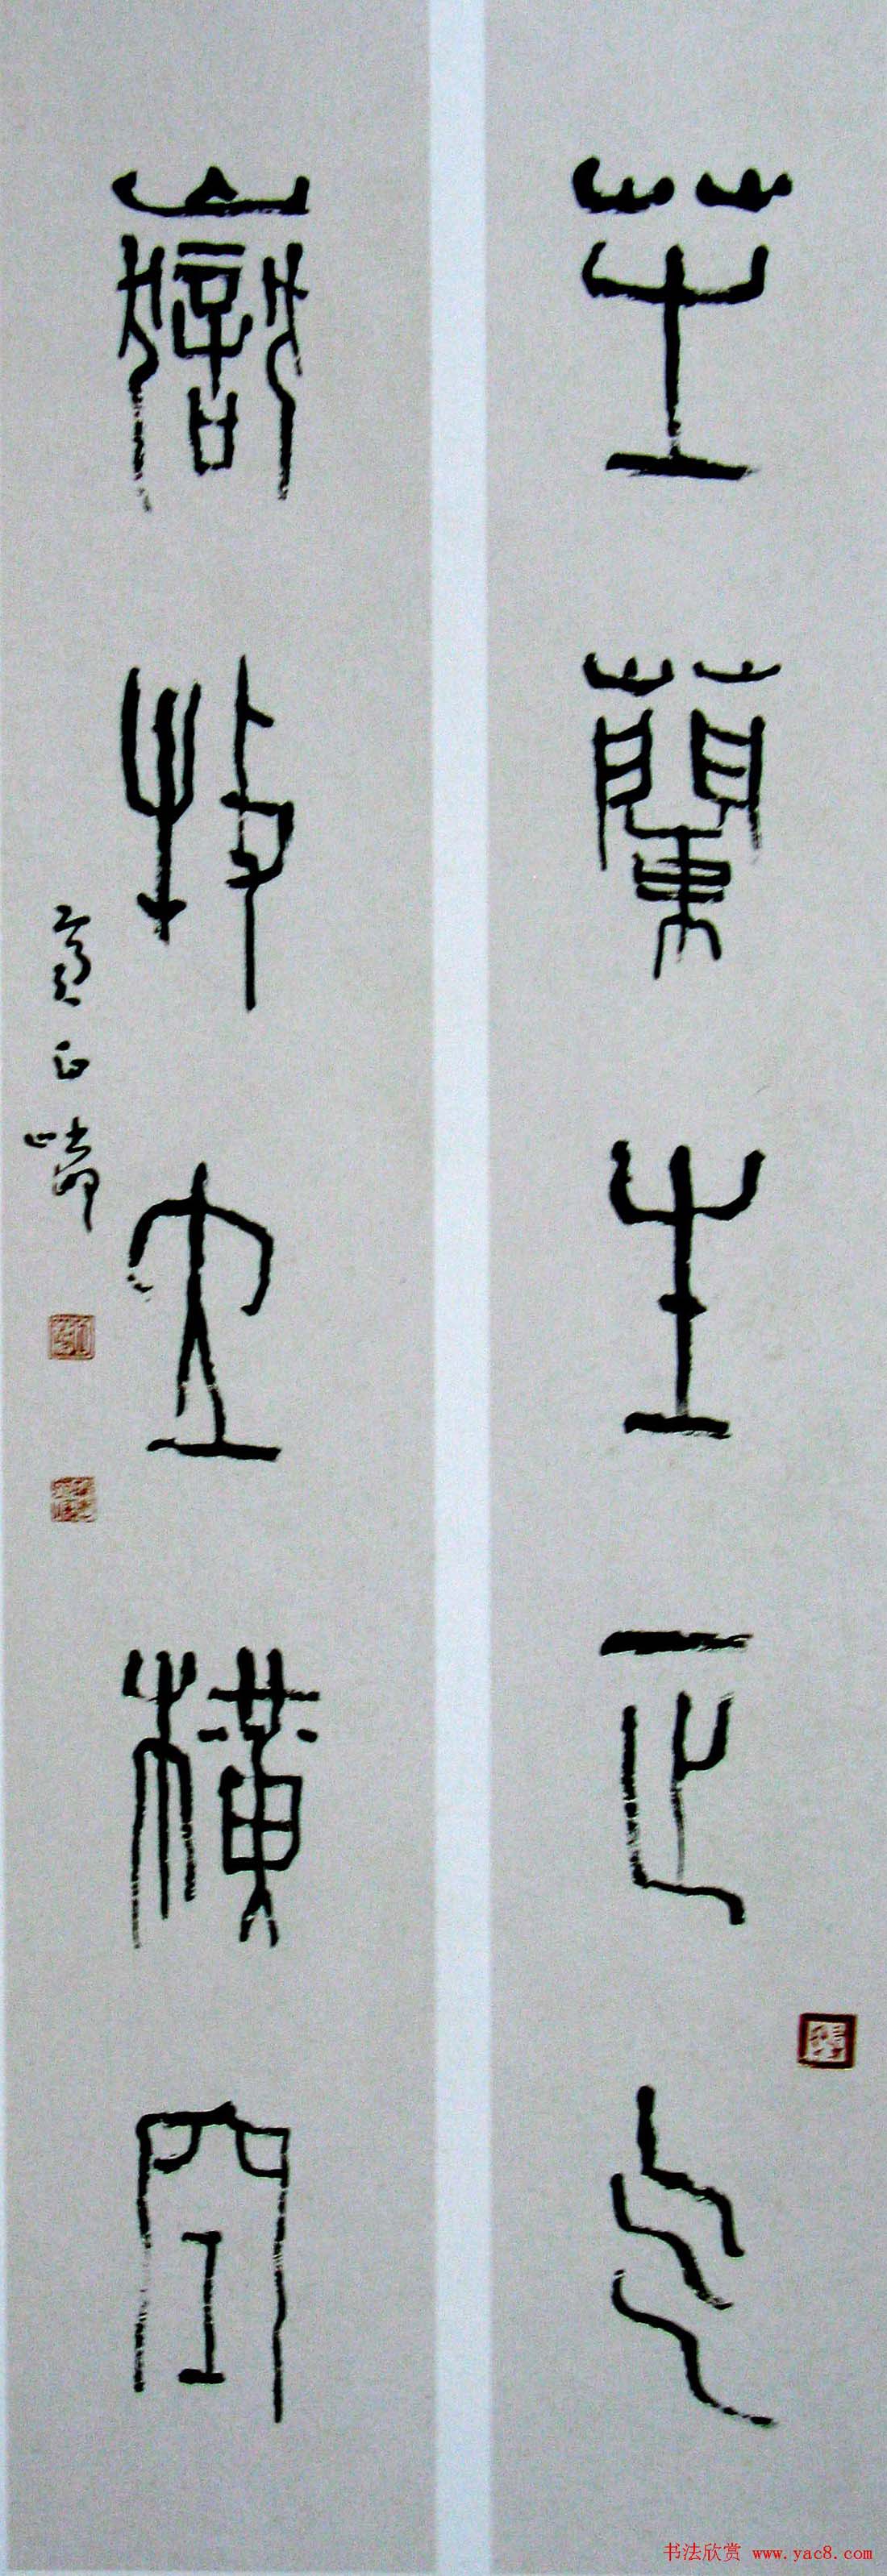 芝蘭生正气
嶽牧立橫空
书法欣赏 www.yac8.com